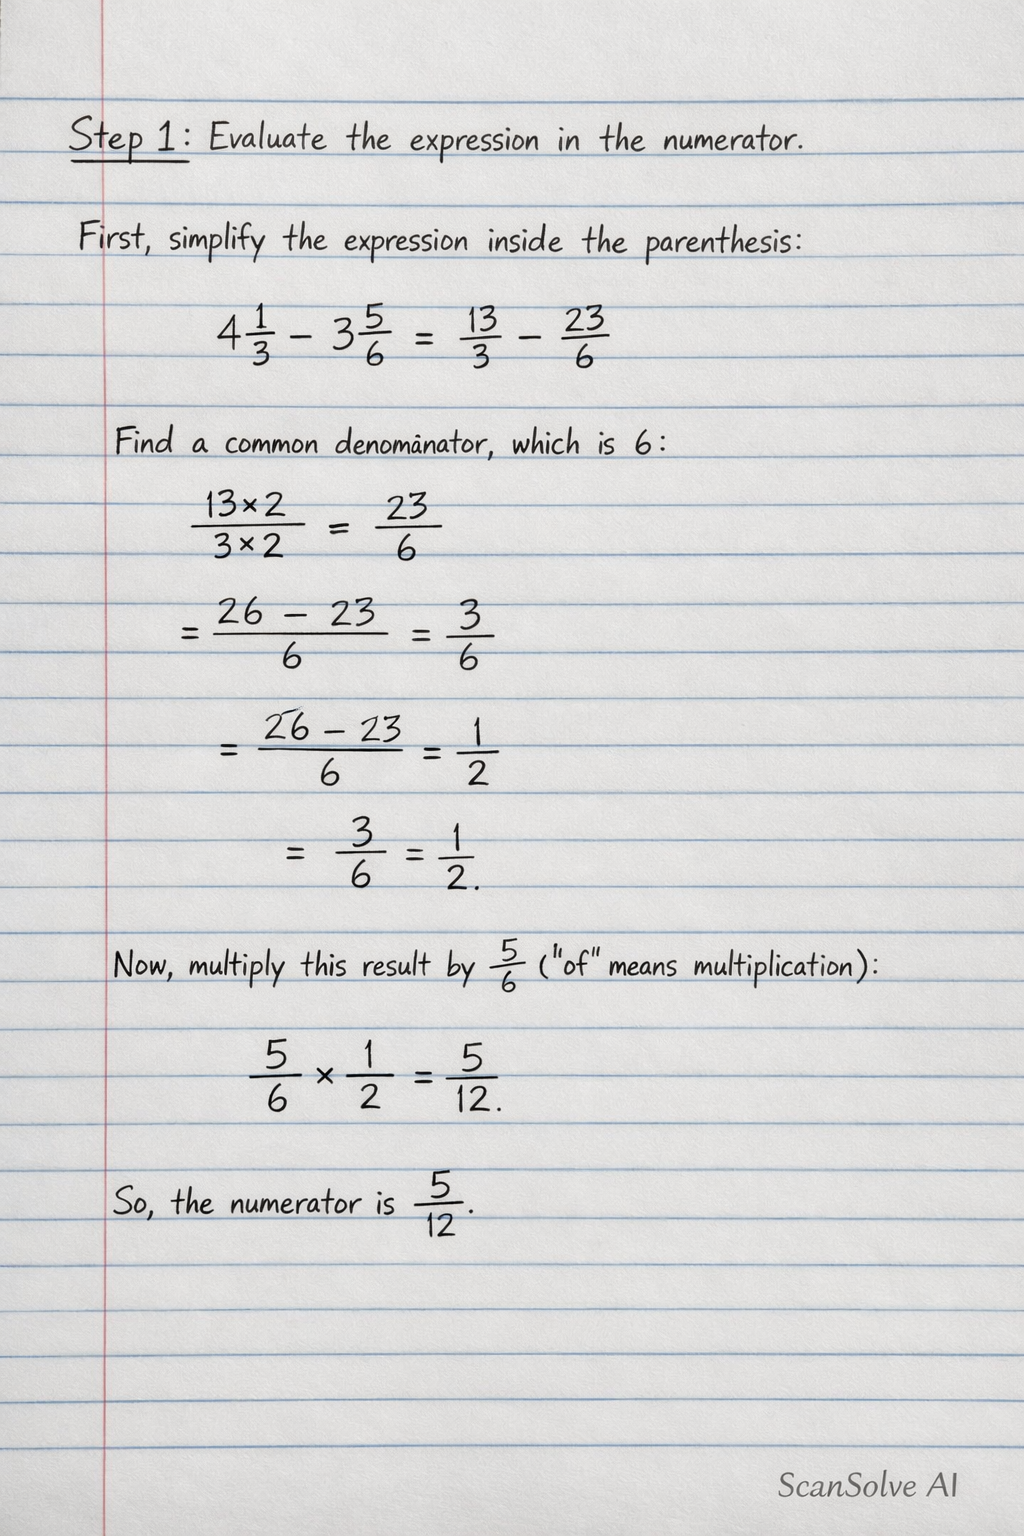 Step 1: Evaluate the expression in the numerator.
First, simplify the expression inside the parenthesis:
4 1/3 − 3 5/6 = 13/3 − 23/6
Find a common denominator, which is 6:
13×2/3×2 = 23/6
= 26 − 23/6 = 3/6
= 26 − 23/6 = 1/2
= 3/6 = 1/2.
Now, multiply this result by 5/6 ("of" means multiplication):
5/6 × 1/2 = 5/12.
So, the numerator is 5/12.
ScanSolve AI